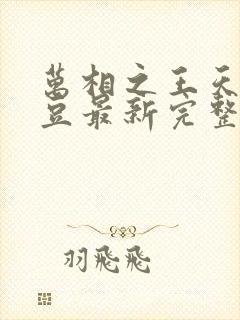 萬相之王天
豆最新完整
羽飛飛